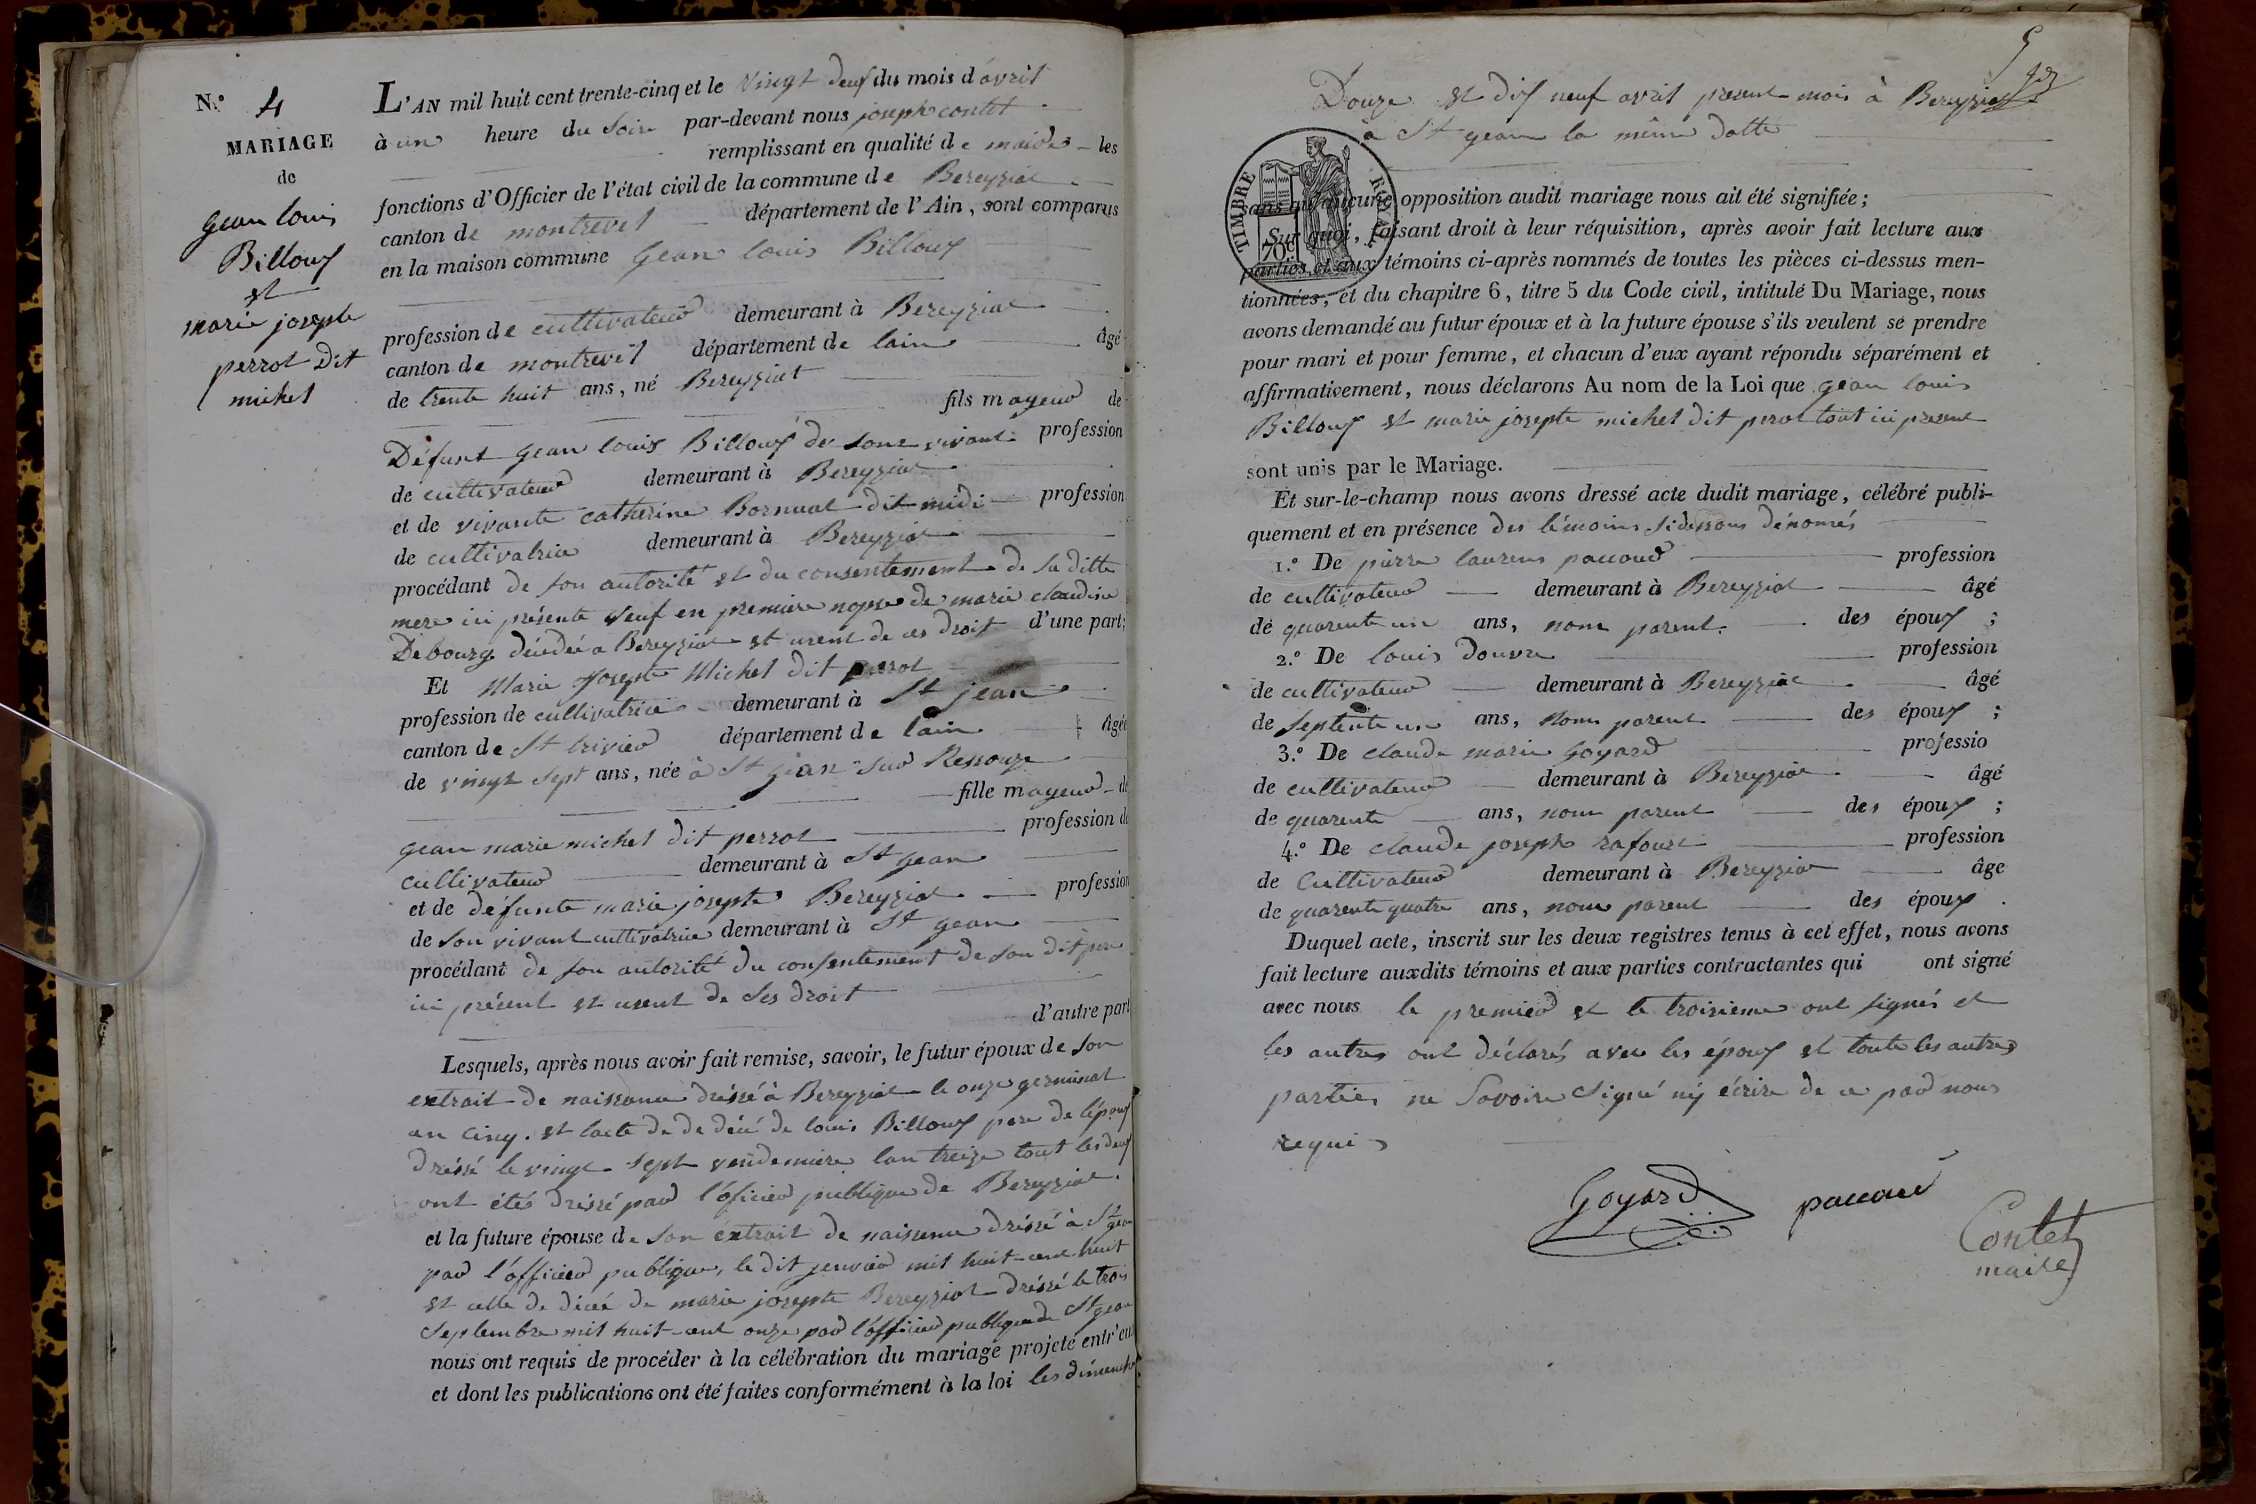 N.º 4
MARIAGE
de
gean louis
Billoux
et
marie josepte
perrot Dit
michel
L'AN mil huit cent trente-cinq et le vingt deux du mois d'avril
à un heure du soire par-devant nous joseph contet
remplissant en qualité de maire les
fonctions d'Officier de l'état civil de la commune de Bereyziat
canton de montrevel département de l'Ain, sont comparus
en la maison commune gean louis Billoux
profession de cultivateur demeurant à Bereyziat
canton de montrevel département de lain âgé
de trente huit ans, né Bereyziat
fils mayeur de
Défunt gean louis Billoux de sont vivant profession
de cultivateur demeurant à Bereyziat
et de vivante catherine Bornuat dit midi profession
de cultivatrice demeurant à Bereyziat
procédant de son autorité et du consentement de sa ditte
mere ici présente veuf en premiere nopse de marie claudine
Debourg décédée a Bereyziat et urent de ces droit d'une part;
Et Marie Josepte Michel dit perrot
profession de cultivatrice demeurant à St jean
canton de St trivier département de lain âgée
de vingt sept ans, née à St gean sur Ressouze
fille mayeur de
gean marie michel dit perrot profession de
cultivateur demeurant à St gean
et de défunte marie josepte Bereyziat profession
de son vivant cultivatrice demeurant à St gean
procédant de son autorité du consentement de son dit pere
ici présent et usent de ses droit
d'autre part
Lesquels, après nous avoir fait remise, savoir, le futur époux de son
extrait de naissance dréssé à Bereyziat le onze germinal
an cinq. et lacte de de décé de louis Billoux pere de l'époux
dréssé le vingt sept vendemiere lan treize tout les deux
ont étés dréssé par l'oficier publique de Bereyziat.
et la future épouse de son extrait de naissence dréssé à St gean
par l'officier publique, le dit jenvier mil huit cent huit
et celle de décé de marie josepte Bereyziat dréssé le trois
septembre mil huit cent onze par l'officier publique de St gean
nous ont requis de procéder à la célébration du mariage projeté entr'eux
et dont les publications ont été faites conformément à la loi les dimenche
5
Douze et dix neuf avril present mois à Bereyziat
à St gean la même datte
TIMBRE ROYAL
70c
sans qu'aucune opposition audit mariage nous ait été signifiée;
Sur quoi, faisant droit à leur réquisition, après avoir fait lecture aux
parties et aux témoins ci-après nommés de toutes les pièces ci-dessus men-
tionnées, et du chapitre 6, titre 5 du Code civil, intitulé Du Mariage, nous
avons demandé au futur époux et à la future épouse s'ils veulent se prendre
pour mari et pour femme, et chacun d'eux ayant répondu séparément et
affirmativement, nous déclarons Au nom de la Loi que gean louis
Billoux et marie josepte michel dit perot tout ici present
sont unis par le Mariage.
Et sur-le-champ nous avons dressé acte dudit mariage, célébré publi-
quement et en présence des témoins sidessous dénomés
1.º De pierre laurens paccoud profession
de cultivateur demeurant à Bereyziat âgé
de quarente un ans, nom parent. des époux ;
2.º De louis douvre profession
de cultivateur demeurant à Bereyziat âgé
de septente un ans, nom parent des époux ;
3.º De claude marie Goyard professio
de cultivateur demeurant à Bereyziat âgé
de quarente ans, nom parent des époux ;
4.º De claude joseph rafourt profession
de Cultivateur demeurant à Bereyziat âge
de quarente quatre ans, nom parent des époux .
Duquel acte, inscrit sur les deux registres tenus à cet effet, nous avons
fait lecture auxdits témoins et aux parties contractantes qui ont signé
avec nous le premier et le troisieme ont signés et
les autres ont déclarés avec les époux et toute les autres
parties ne savoire signé nÿ écrire de ce par nous
requis
Goyard paccoud
Contet
maire